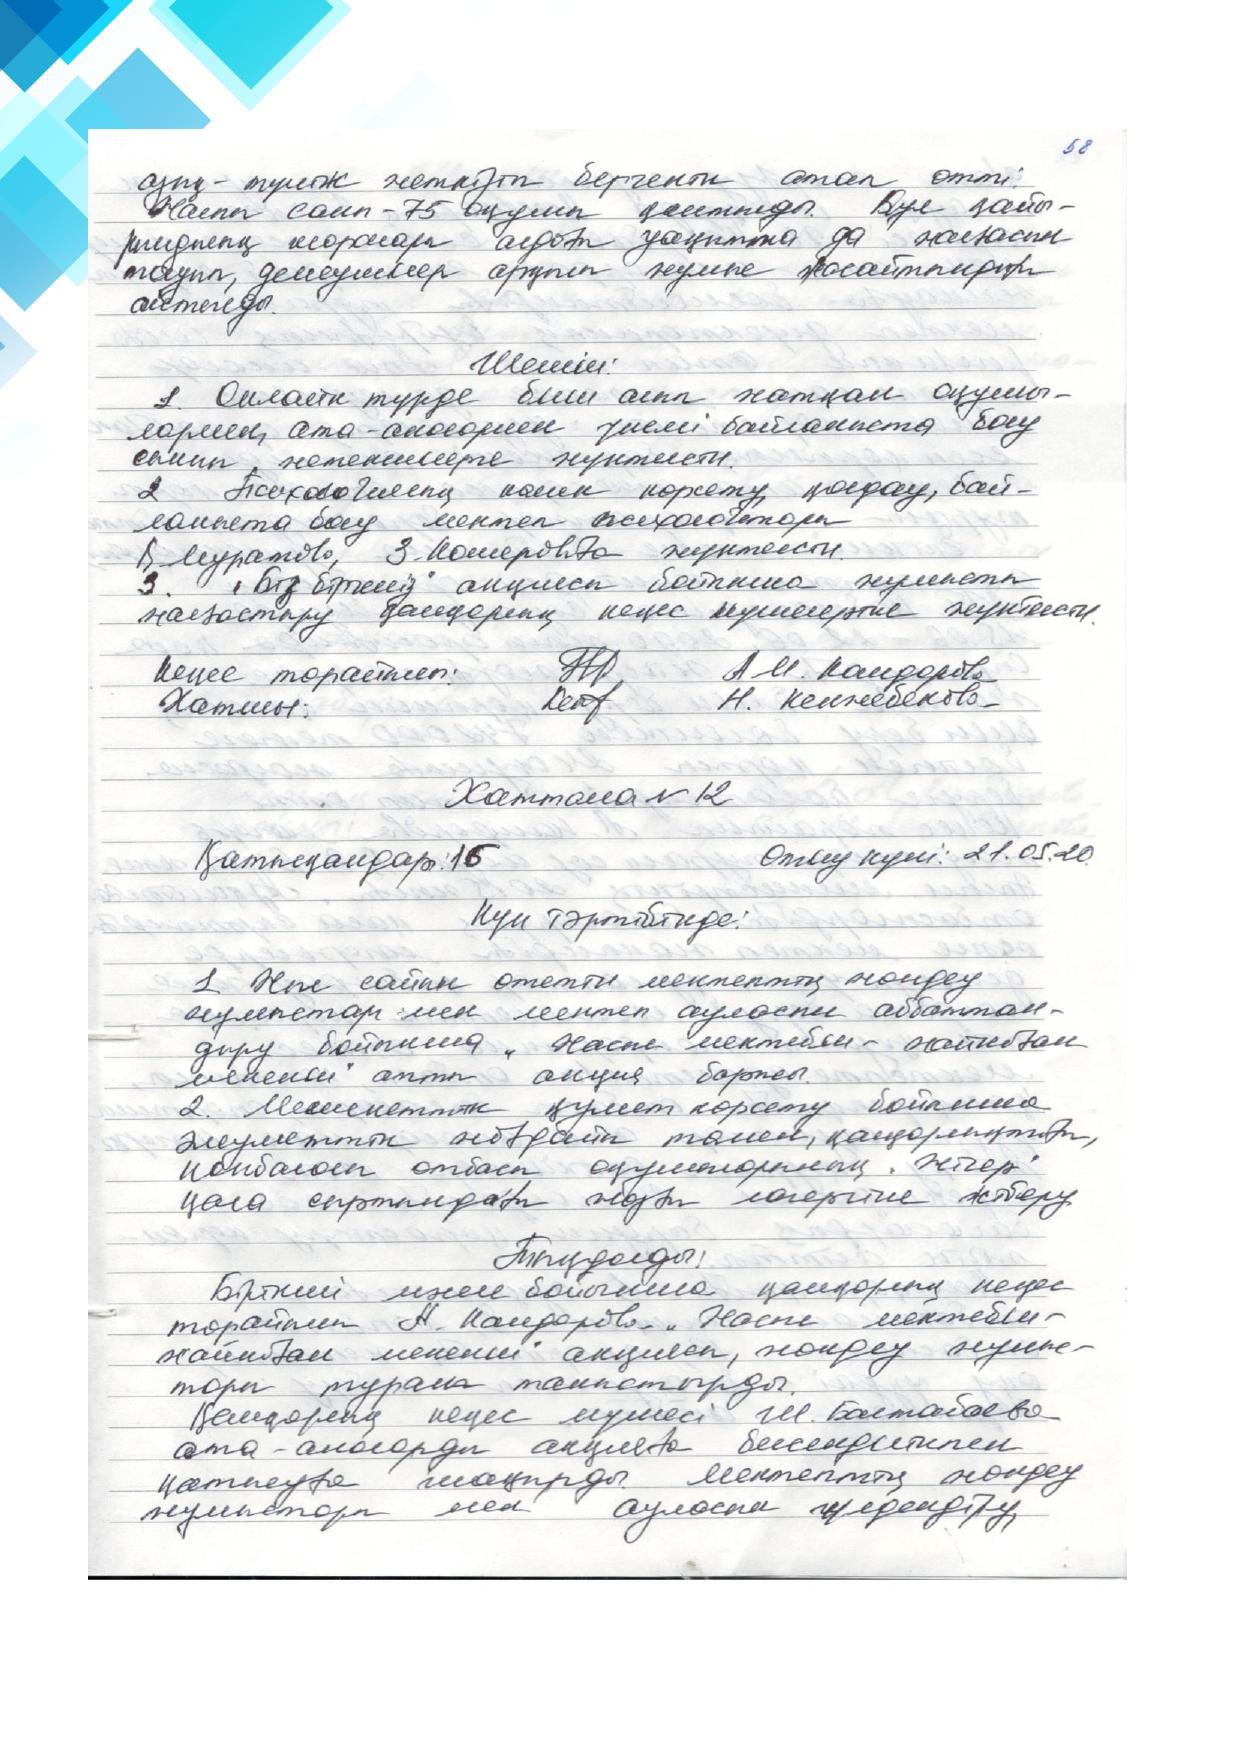 58
азық-түлік жеткізіп бергенін атап өтті.
Жалпы саны-75 оқушы қамтылды. Бұл қайы-
рымдылық шаралары алдағы уақытта да жалғасын
тауып, демеушілер арқылы жұмыс жасайтындығы
айтылды.
Шешім:
1. Онлайн түрде білім алып жатқан оқушы-
лармен, ата-аналармен үнемі байланыста болу
сынып жетекшілерге жүктелсін.
2 Психологиялық көмек көрсету, қолдау, бай-
ланыста болу мектеп психологтары
Қ Муратова, З. Комероваға жүктелсін.
3. "Біз біргеміз" акциясы бойынша жұмысты
жалғастыру қамқорлық кеңес мүшелеріне жүктелсін.
Кеңес төрайымы: А М. Кандарова
Хатшы: Н. Кенжебекова
Хаттама №12
Қатысқандар: 16 Өткізу күні: 21.05.20
Күн тәртібінде:
1. Жыл сайын өтетін мектептің жөндеу
жұмыстары мен мектеп ауласын аббаттан-
дыру бойынша "Жаспы мектебім- жайнаған
мекенім" атты акция барысы.
2. Мемлекеттік қызмет көрсету бойынша
әлеуметтік жағдайы төмен, қамқорлықтағы,
көпбалалы отбасы оқушыларының "Жігер"
қала сыртындағы жазғы лагеріне жіберу
Тыңдалды:
Бірінші мәселе бойынша қамқорлық кеңес
төрайымы А. Кандарова "Жаспы мектебім-
жайнаған мекенім" акциясы, жөндеу жұмыс-
тары туралы таныстырды.
Қамқорлық кеңес мүшесі Ш. Балтабаева
ата-аналарды акцияға белсенділікпен
қатысуға шақырды. Мектептің жөндеу
жұмыстары мен ауласын көгалдандыру,